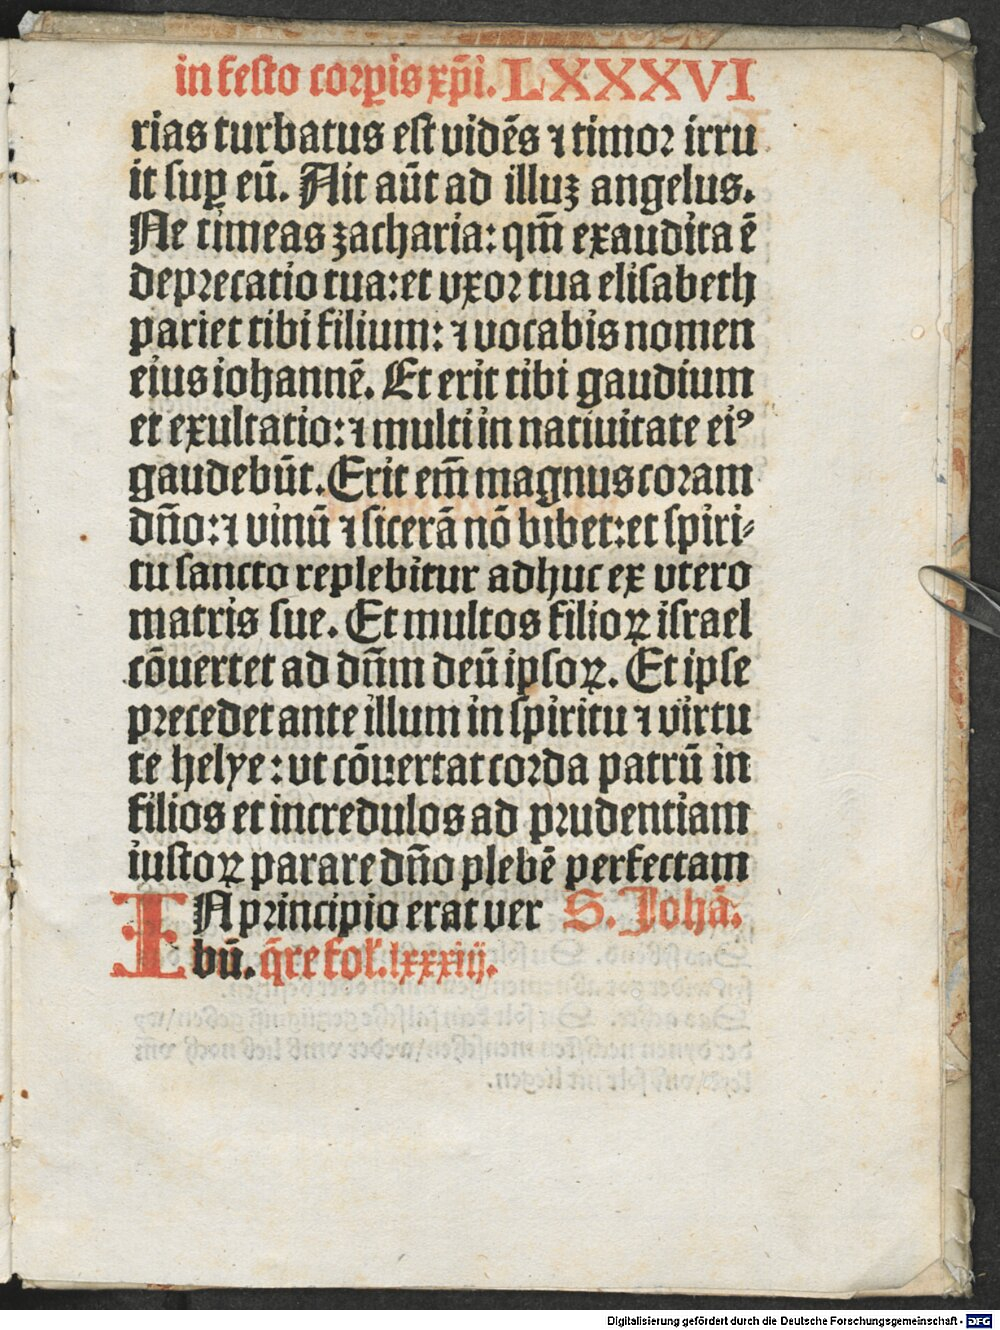 in festo corꝑis xp̄i. LXXXVI
rias turbatus est vidēs ⁊ timor irru
it suꝑ eū. Ait aūt ad illuꝫ angelus.
Ne timeas zacharia: qm̄ exaudita ē
deprecatio tua: et vxor tua elisabeth
pariet tibi filium: ⁊ vocabis nomen
eius iohannē. Et erit tibi gaudium
et exultatio: ⁊ multi in natiuitate eiꝰ
gaudebūt. Erit em̄ magnus coram
dn̄o: ⁊ vinū ⁊ sicerā nō bibet: et spiri⸗
tu sancto replebitur adhuc ex vtero
matris sue. Et multos filioꝝ israel
cōuertet ad dn̄m deū ipsoꝝ. Et ipse
precedet ante illum in spiritu ⁊ virtu
te helye: vt cōuertat corda patrū in
filios et incredulos ad prudentiam
iustoꝝ parare dn̄o plebē perfectam
IN principio erat ver S. Johā.
bū. q̄re fol. lxxxiij.
Digitalisierung gefördert durch die Deutsche Forschungsgemeinschaft - DFG